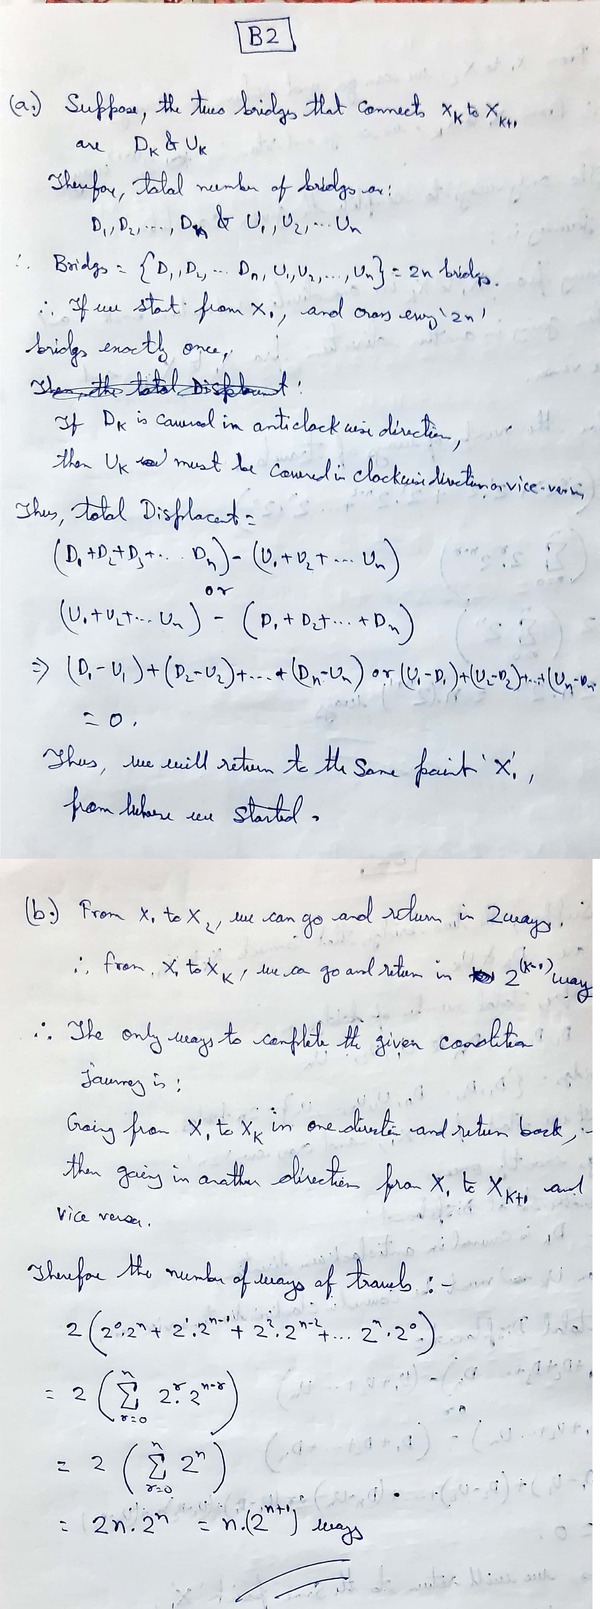 B2
(a.) Suppose, the two bridges that connects X_K to X_{K+1}
are D_K & U_K
Therefore, total number of bridges are:
D_1, D_2, ..., D_n & U_1, U_2, ... U_n
∴ Bridgs = {D_1, D_2, ... D_n, U_1, U_2, ..., U_n} = 2n bridgs.
∴ If we start from X_1, and cross every '2n'
bridgs exactly once,
Then, the total Displacent:
If D_K is covered in anticlockwise direction,
then U_K must be covered in clockwise direction or vice-versa
Thus, total Displacent =
(D_1 + D_2 + D_3 + ... D_n) - (U_1 + U_2 + ... U_n)
or
(U_1 + U_2 + ... U_n) - (D_1 + D_2 + ... + D_n)
⇒ (D_1 - U_1) + (D_2 - U_2) + .... + (D_n - U_n) or (U_1 - D_1) + (U_2 - D_2) + ... + (U_n - D_n
= 0.
Thus, we will return to the same point 'X_1',
from where we started.
(b.) From X_1 to X_2, we can go and return in 2 ways.
∴ from X_1 to X_K, we can go and return in 2^{(K-1)} way
∴ The only ways to complete the given condition
Journey is:
Going from X_1 to X_K in one direction and return back,
then going in another direction from X_1 to X_{K+1} and
vice versa.
Therefore the number of ways of travels :-
2 (2^0.2^n + 2^1.2^{n-1} + 2^2.2^{n-2} + ... 2^n.2^0)
= 2 (∑_{r=0}^{n} 2^r.2^{n-r})
= 2 (∑_{r=0}^{n} 2^n)
= 2n.2^n = n.(2^{n+1}) ways